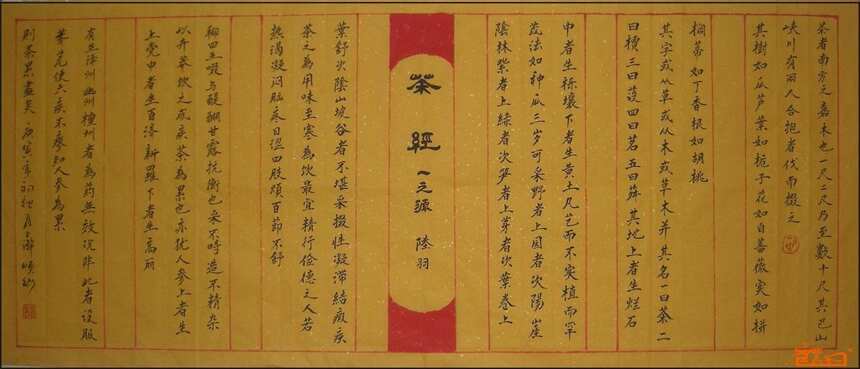 茶者南方之嘉木也一尺二尺乃至数十尺其巴山
峡川有两人合抱者伐而掇之
其樹如瓜芦葉如栀子花如白薔薇实如栟
榈蒂如丁香根如胡桃
其字或从草或从木或草木并其名一曰茶二
曰檟三曰蔎四曰茗五曰荈其地上者生烂石
中者生栎壤下者生黄土凡艺而不实植而罕
茂法如种瓜三岁可采野者上园者次陽崖
陰林紫者上绿者次笋者上芽者次葉卷上
茶經
一之源
陸羽
葉舒次陰山坡谷者不堪采掇性凝滞结瘕疾
茶之為用味至寒為饮最宜精行俭德之人若
热渴凝闷脑疼目涩四肢烦百節不舒
聊四五啜与醍醐甘露抗衡也采不時造不精杂
以卉莽饮之成疾茶為累也亦犹人参上者生
上党中者生百济新羅下者生高丽
有生澤州幽州檀州者為药無效况非此者设服
荠苨使六疾不瘳知人参為累
则茶累盡矣